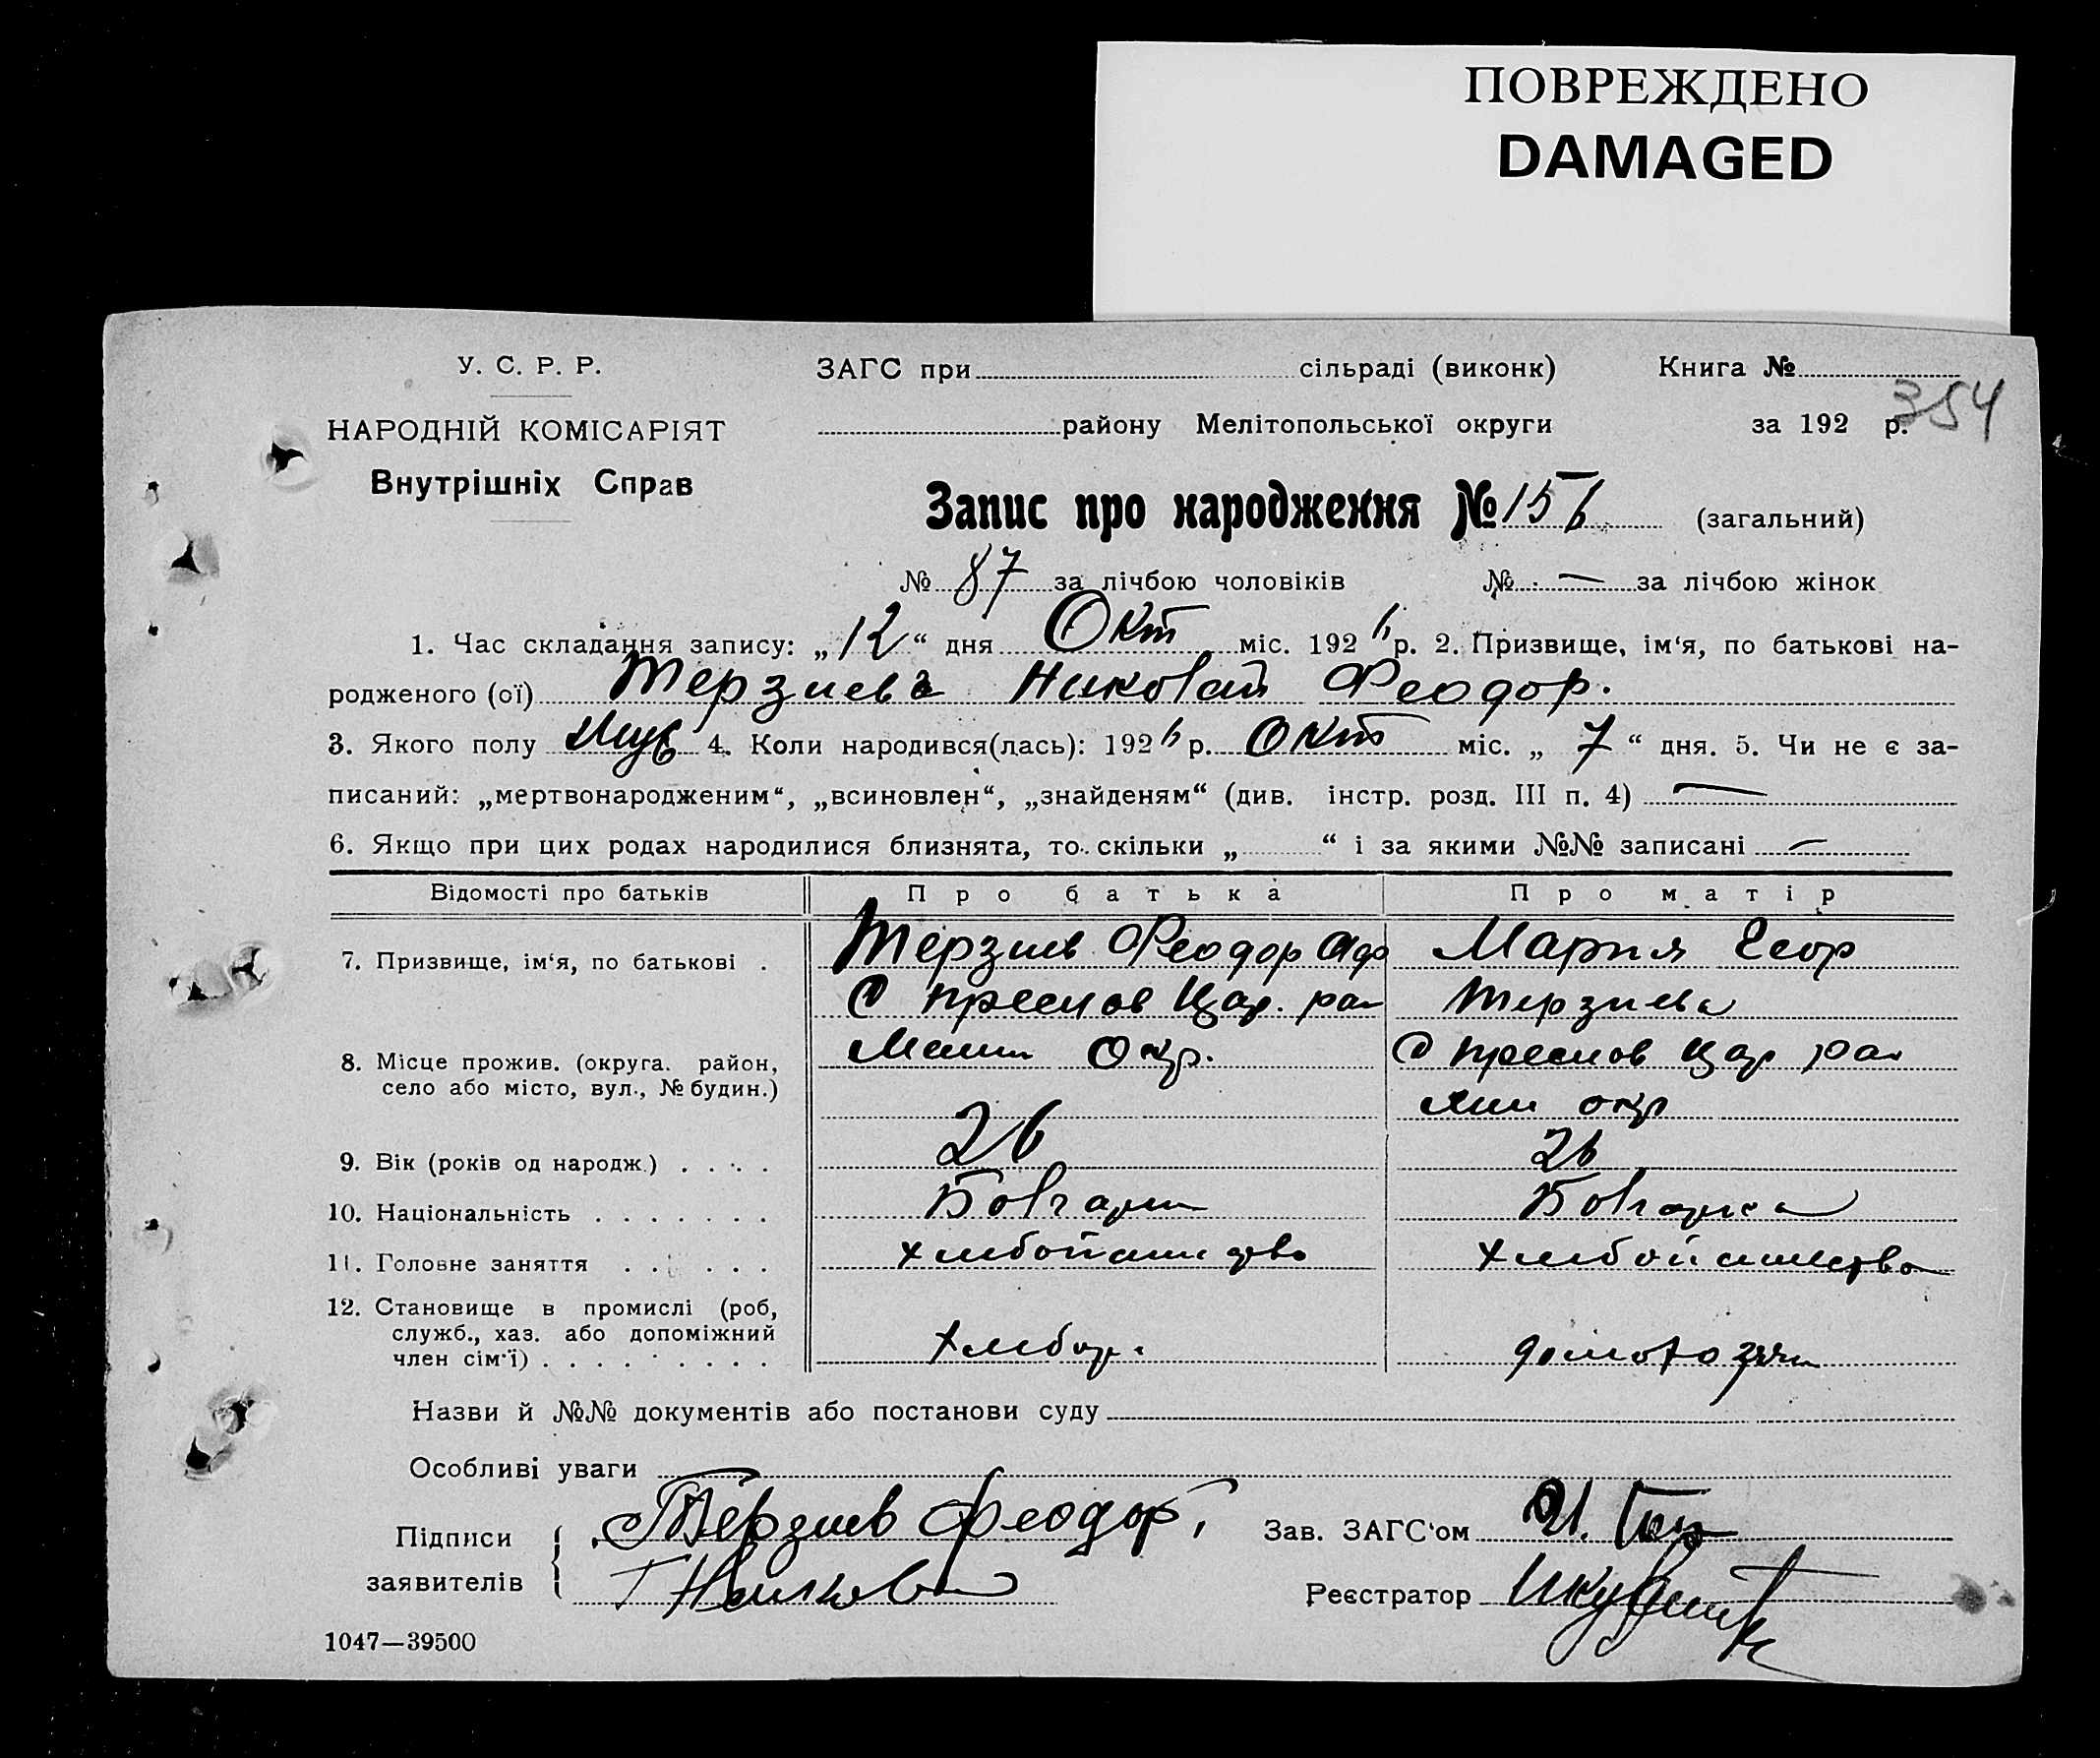 ПОВРЕЖДЕНО
DAMAGED
У. С. Р. Р.
ЗАГС при сільраді (виконк) Книга №
354
НАРОДНІЙ КОМІСАРІЯТ
району Мелітопольської округи за 192 р.
Внутрішніх Справ
Запис про народження № 156 (загальний)
№ 87 за лічбою чоловіків № — за лічбою жінок
1. Час складання запису: „12“ дня Окт міс. 1926 р. 2. Призвище, ім‘я, по батькові на-
родженого (ої) Терзиева Николай Феодор.
3. Якого полу Муж 4. Коли народився(лась): 1926 р. Окт міс. „ 7 “ дня. 5. Чи не є за-
писаний: „мертвонародженим“, „всиновлен“, „знайденям“ (див. інстр. розд. III п. 4) —
6. Якщо при цих родах народилися близнята, то скільки „ “ і за якими №№ записані —
Відомості про батьків Про батька Про матір
7. Призвище, ім‘я, по батькові . Терзиев Феодор Мария Егор
С Преслов Цар. ра Терзиева
8. Місце прожив. (округа. район, село або місто, вул., № будин.) Мел Окр. С Преслов Цар ра
окр
9. Вік (років од народж.) . . . . 26 26
10. Національність . . . . . . . Болгарин Болгарка
11. Головне заняття . . . . . . хлебопашество хлебопашество
12. Становище в промислі (роб,
служб., хаз. або допоміжний
член сім‘ї) . . . . . . . . . Хлебор. домохозяй
Назви й №№ документів або постанови суду
Особливі уваги
Підписи Терзиев Феодор, Зав. ЗАГС‘ом И.
заявителів Реєстратор
1047—39500